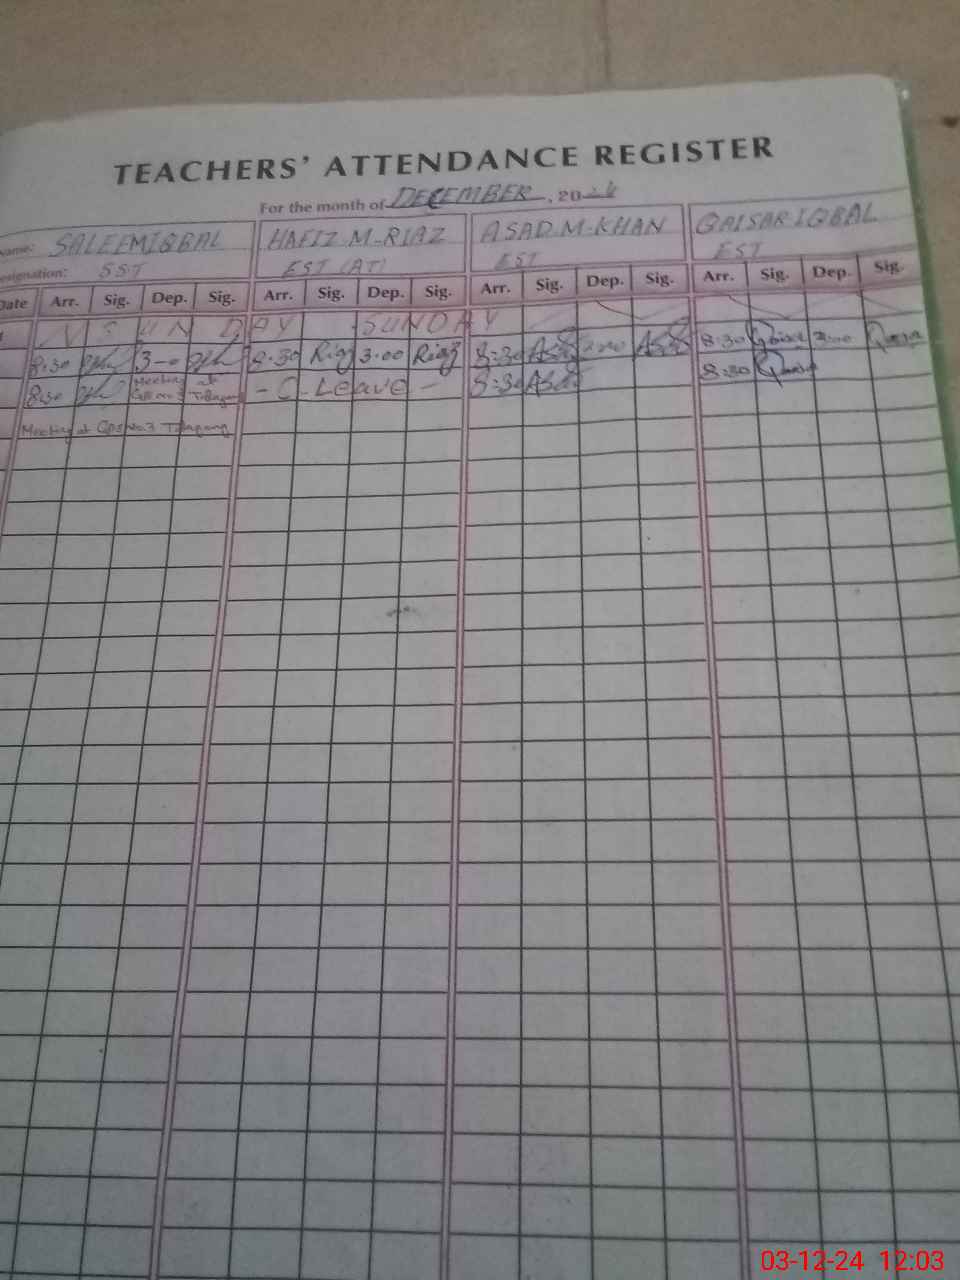 TEACHERS' ATTENDANCE REGISTER
For the month of DECEMBER, 2024
Name: SALEEM IQBAL HAFIZ M-RIAZ ASAD M-KHAN QAISAR IQBAL
Designation: SST EST (AT) EST EST
Date Arr. Sig. Dep. Sig. Arr. Sig. Dep. Sig. Arr. Sig. Dep. Sig. Arr. Sig. Dep. Sig.
SUNDAY SUNDAY
8:30 3-00 8:30 Riaz 3:00 Riaz 8:30 Asad Asad 8:30 Qaisar 3:00 Qaisar
8:30 Meeting at - C - Leave - 8:30 Asad 8:30 Qaisar
Talagang
Meeting at GPS No.3 Talagang
03-12-24 12:03